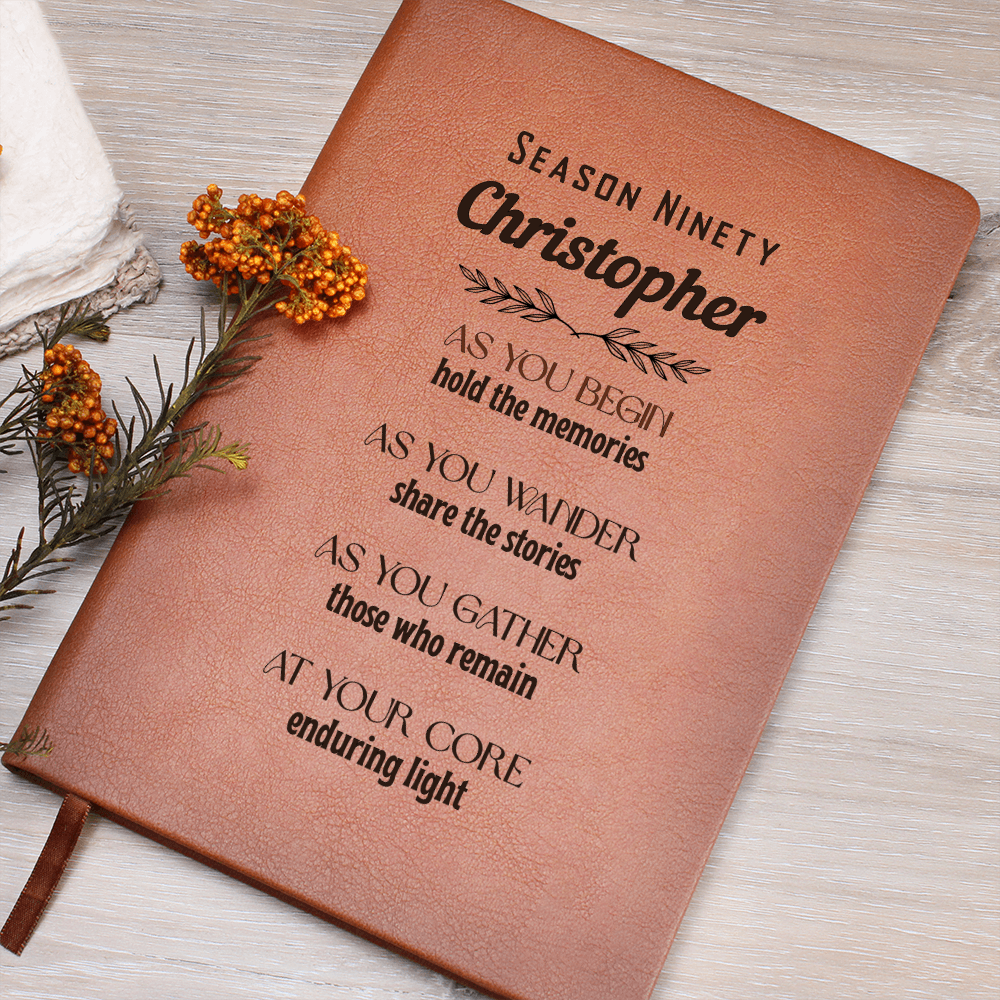 SEASON NINETY
Christopher
AS YOU BEGIN
hold the memories
AS YOU WANDER
share the stories
AS YOU GATHER
those who remain
AT YOUR CORE
enduring light